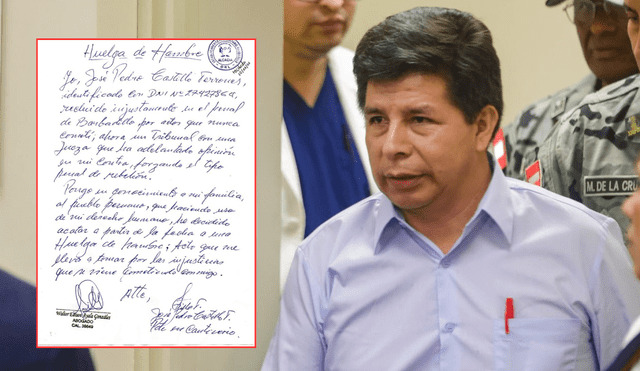 Huelga de Hambre
Yo, José Pedro Castillo Terrones,
identificado con DNI Nº 27427864,
recluido injustamente en el penal
de Barbadillo por actos que nunca
cometí; ahora un Tribunal con una
jueza que ha adelantado opinión
en mi contra, forzando el tipo
penal de rebelión.
Pongo en conocimiento a mi familia,
al pueblo Peruano, que haciendo uso
de mi derecho humano, he decidido
acatar a partir de la fecha a una
Huelga de hambre; Acto que me
lleva a tomar por las injusticias
que se viene cometiendo conmigo.
Atte,
José Pedro Castillo T.
Pdte
ABOGADO
CAL.
M. DE LA CR